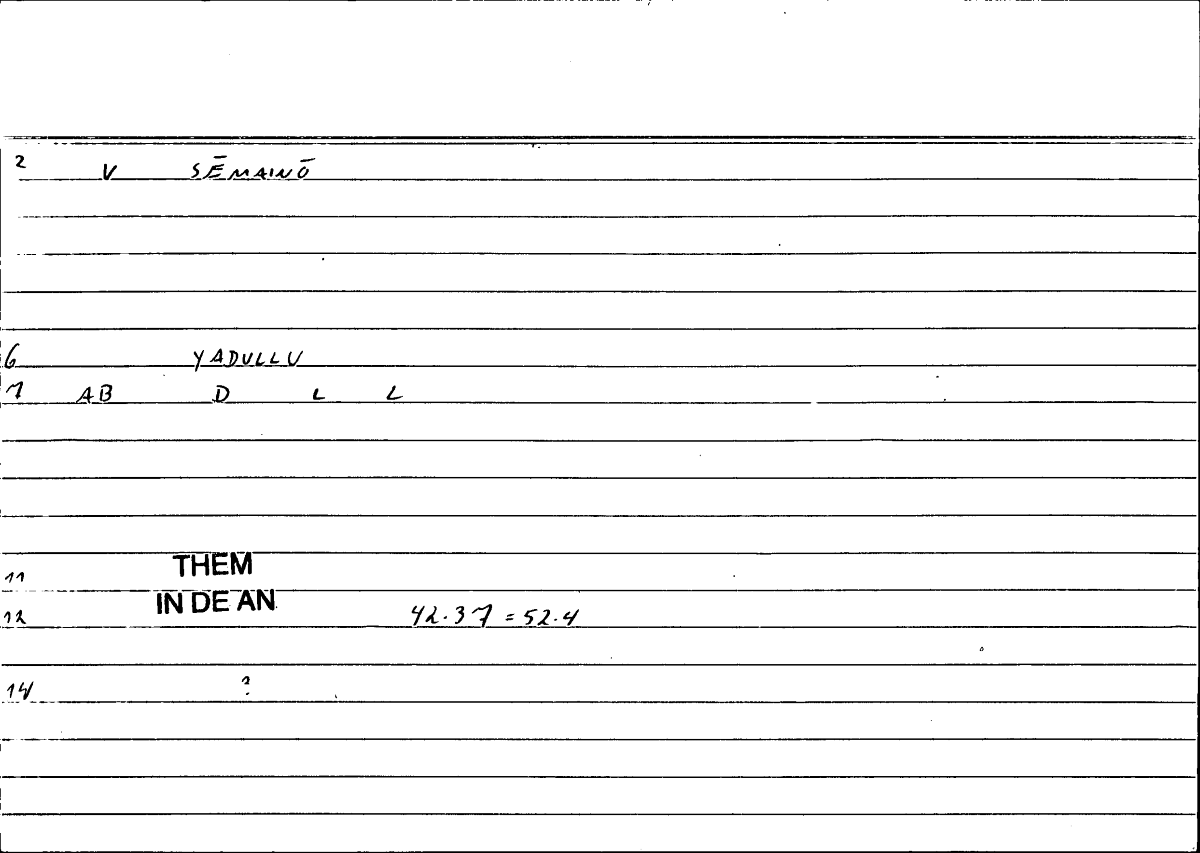 2 V SĒMAINŌ
6 YADULLU
7 AB D L L
11 THEM
12 IN DE AN 42.37 = 52.4
14 ?